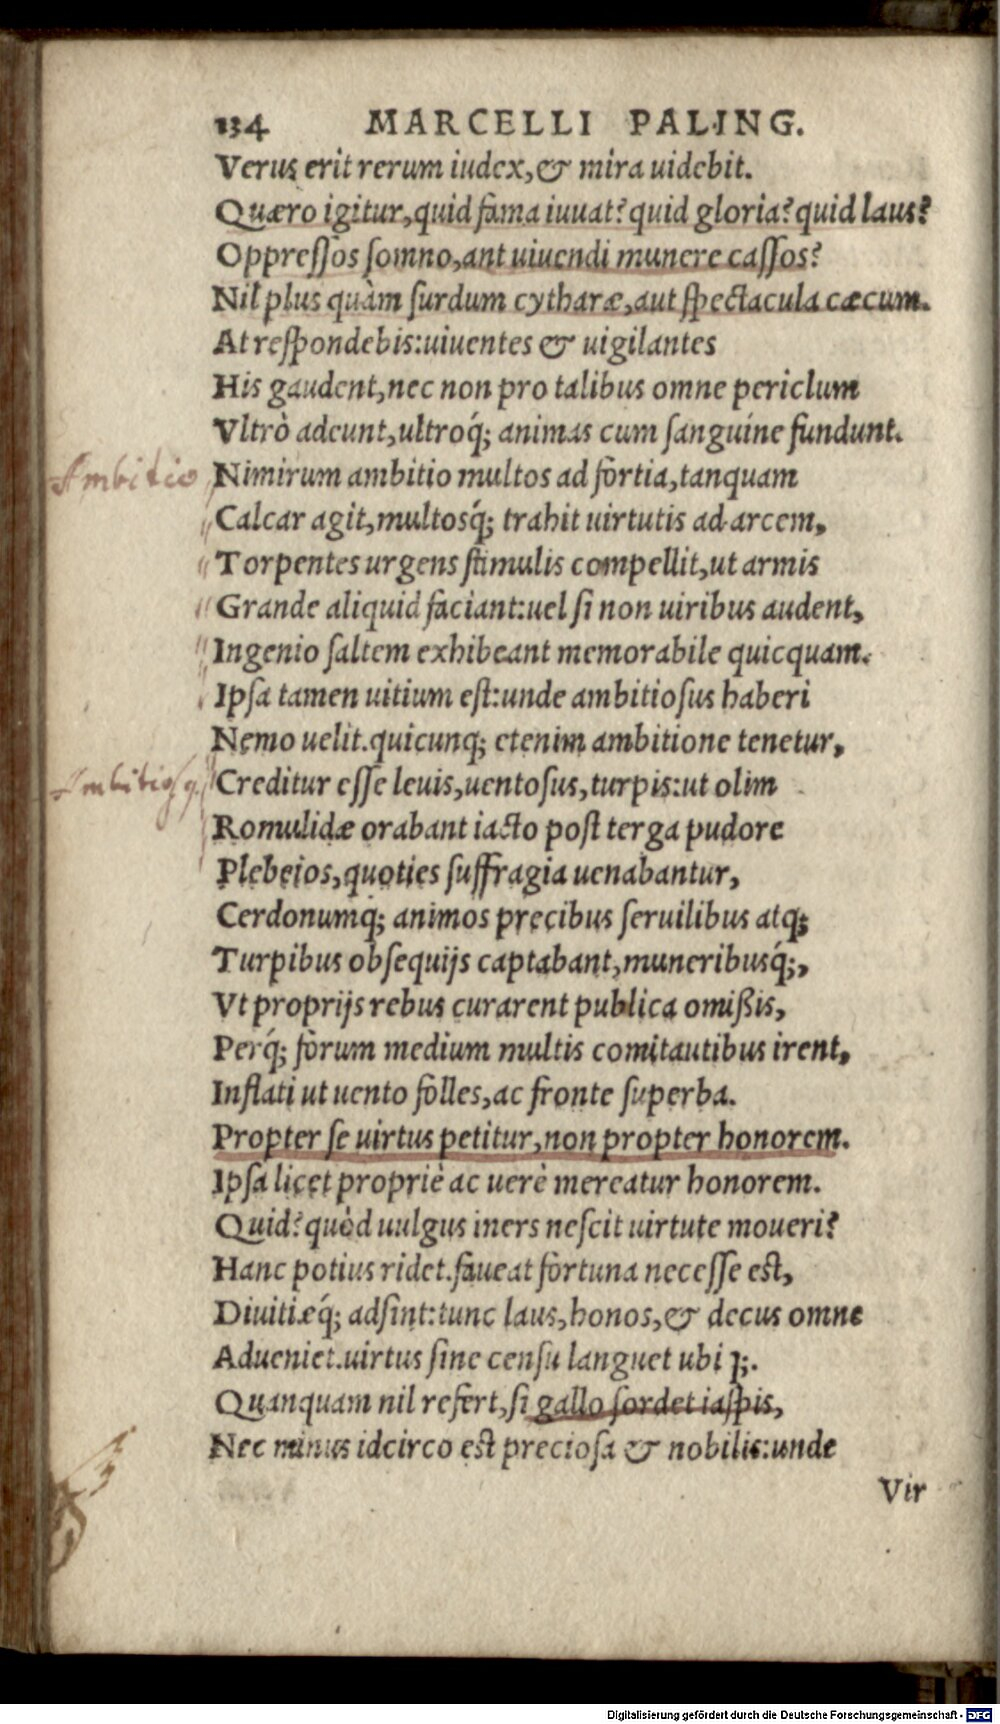 134 MARCELLI PALING.
Verus erit rerum iudex,& mira uidebit.
Quæro igitur,quid fama iuuat? quid gloria? quid laus?
Oppreſſos ſomno,ant uiuendi munere caſſos?
Nil plus quàm ſurdum cytharæ,aut ſpectacula cæcum.
At reſpondebis:uiuentes & uigilantes
His gaudent,nec non pro talibus omne periclum
Vltrò adeunt,ultroq́; animas cum ſanguine fundunt.
Ambitio Nimirum ambitio multos ad fortia,tanquam
Calcar agit,multosq́; trahit uirtutis ad arcem,
Torpentes urgens ſtimulis compellit,ut armis
Grande aliquid faciant:uel ſi non uiribus audent,
Ingenio ſaltem exhibeant memorabile quicquam.
Ipſa tamen uitium eſt:unde ambitioſus haberi
Nemo uelit.quicunq; etenim ambitione tenetur,
Creditur eſſe leuis,uentoſus,turpis:ut olim
Romulidæ orabant iacto poſt terga pudore
Plebeios,quoties ſuffragia uenabantur,
Cerdonumq; animos precibus ſeruilibus atq;
Turpibus obſequijs captabant,muneribusq́;,
Vt proprijs rebus curarent publica omißis,
Perq́; forum medium multis comitautibus irent,
Inflati ut uento folles,ac fronte ſuperba.
Propter ſe uirtus petitur,non propter honorem.
Ipſa licet propriè ac uerè mereatur honorem.
Quid? quòd uulgus iners neſcit uirtute moueri?
Hanc potius ridet.faueat fortuna neceſſe eſt,
Diuitiæq́; adſint:tunc laus,honos,& decus omne
Adueniet.uirtus ſine cenſu languet ubi
Quanquam nil refert,ſi gallo ſordet iaſpis,
Nec minus idcirco eſt precioſa & nobilis:unde
Vir
Digitalisierung gefördert durch die Deutsche Forschungsgemeinschaft - DFG